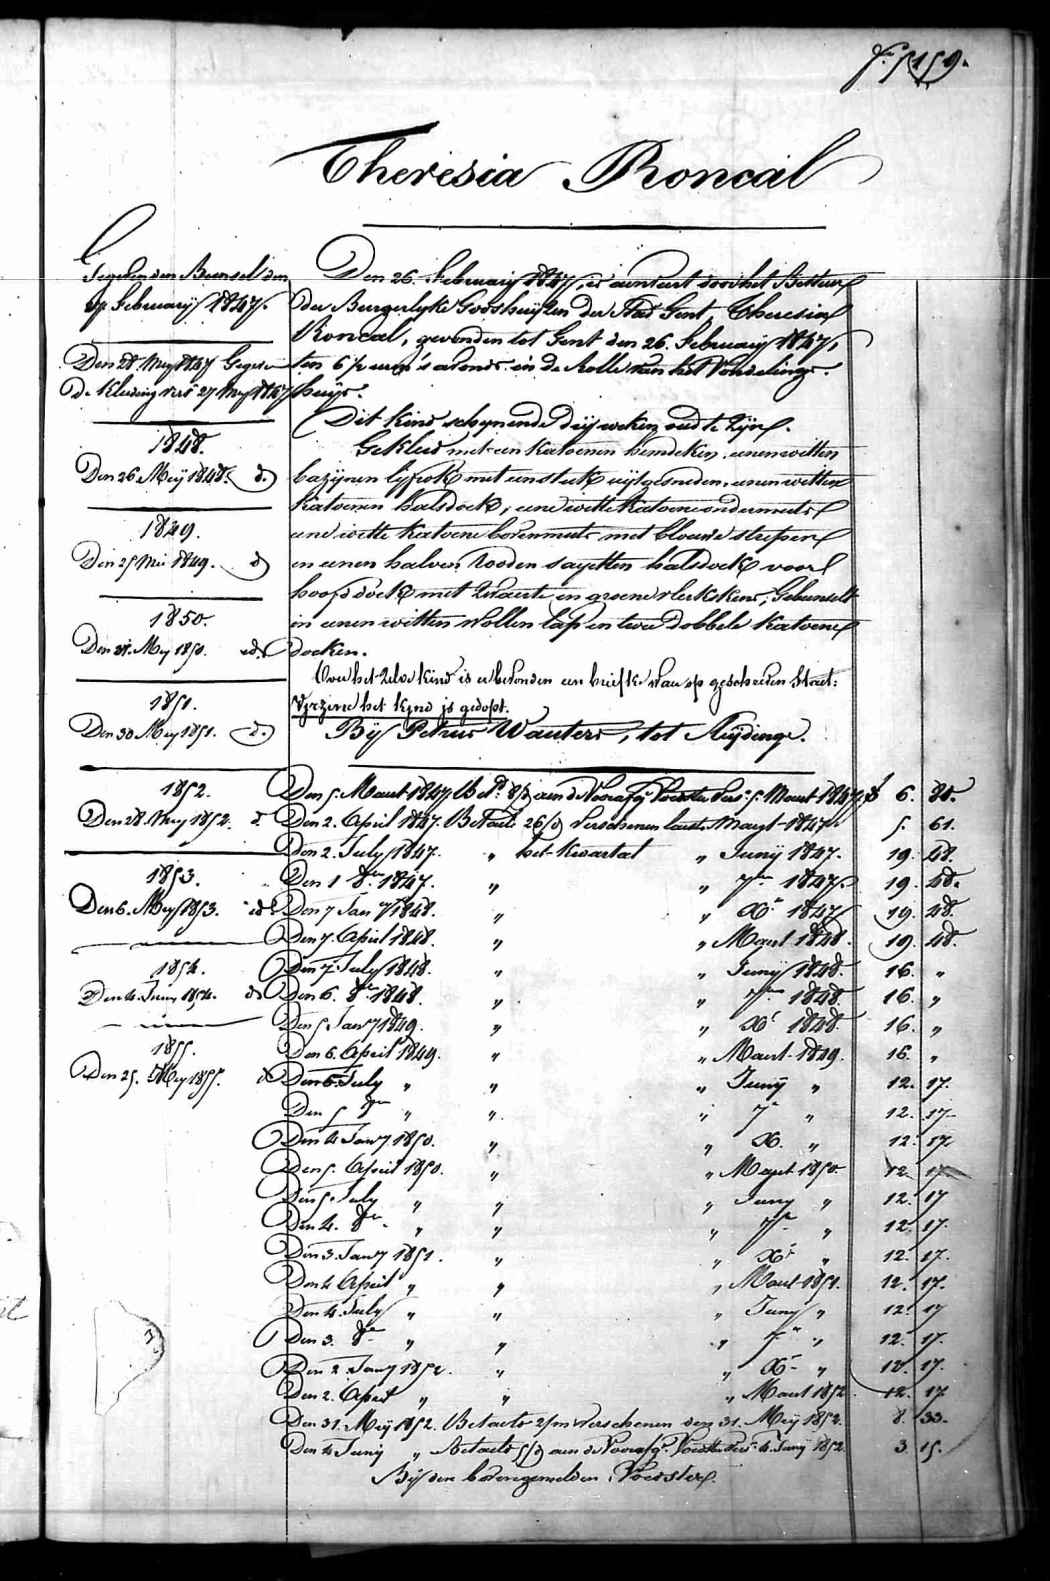 159.
Theresia Roncal
Gegeven den Bunsel den
Februarij 1847.
Den 28. Mey 1847 Gegeven
De Kleeding vers 27 Mey 1847
1848.
Den 26 Meij 1848. d.
1849.
Den 25 Mei 1849. d
1850.
Den 21. Mey 1850. id.
1851.
Den 30 Mey 1851. d.
1852.
Den 28. Mey 1852. d.
1853.
Den 6. Mey 1853. id.
1854.
Den 4. Juny 1854. d
1855.
Den 25. Mey 1855. d
Den 26. Februarij 1847, is aenveert door het Bestuer
der Burgerlyke Godshuyzen der Stad Gent, Theresia
Roncal, gevonden tot Gent den 26. Februarij 1847,
ten 6 ½ uren 's avonds in de Rolle van het Vondelings-
huijs.
Dit kind schynende drij weken oud te zijn.
Gekleed met een katoenen hemdeken, eenen witten
bazijnen lijfrok met een stuk uijtgesneden, eenen witten
katoenen halsdoek, eene witte katoene ondermuts
eene witte katoene bovenmuts met blouwe strepen
en eenen halven rooden sayetten halsdoek voor
hoofddoek met zwarte en groene vlekskens; Gebunselt
in eenen witten wollen lap en twee dobbele katoene
doeken.
Over het zelve kind is er bevonden een briefke waer op geschreven staet:
Vyrzene het kynd is gedopt.
Bij Petrus Wauters, tot Nuijdinge.
Den 5. Maert 1847 Bet.d 8/d aen de Voorafg. Voedster Vers. 5. Maert 1847. f 6. 80.
Den 2. April 1847. Betaelt 26/d Verschenen laetste Maert 1847. 5. 61.
Den 2. July 1847. „ het kwartal „ Junij 1847. 19. 48.
Den 1 8er 1847. „ „ 7er 1847. 19. 48.
Den 7 Jany 1848. „ „ Xr 1847 19. 48.
Den 7. April 1848. „ „ Maert 1848. 19. 48.
Den 7. July 1848. „ „ Junij 1848. 16. „
Den 6. 8er 1848. „ „ 7er 1848. 16. „
Den 5 Jany 1849. „ „ Xr 1848. 16. „
Den 6. April 1849. „ „ Maert 1849. 16. „
Den 6. July „ „ „ Junij „ 12. 17.
Den 5 8er „ „ „ 7r „ 12. 17.
Den 4 Jany 1850. „ „ X. „ 12. 17
Den 5. April 1850. „ „ Maert 1850 12. 17.
Den 5. July „ „ „ Juny „ 12. 17
Den 4. 8er „ „ „ 7er „ 12. 17.
Den 3. Jany 1851. „ „ Xr „ 12. 17.
Den 4 April „ „ „ Maert 1851. 12. 17.
Den 4. July „ „ „ Juny „ 12. 17
Den 3. 8er „ „ „ 7r „ 12. 17.
Den 2. Jany 1852. „ „ Xr „ 12. 17.
Den 2. April „ „ „ Maert 1852. 12. 17
Den 31. Meij 1852. Betaelt 2/m verschenen den 31. Meij 1852. 8. 33.
Den 4 Junij „ Betaelt 5/d aen de Voorafg. Voedster Vers. 4. Junij 1852. 3. 15.
Bij den bovengemelden Voedster.